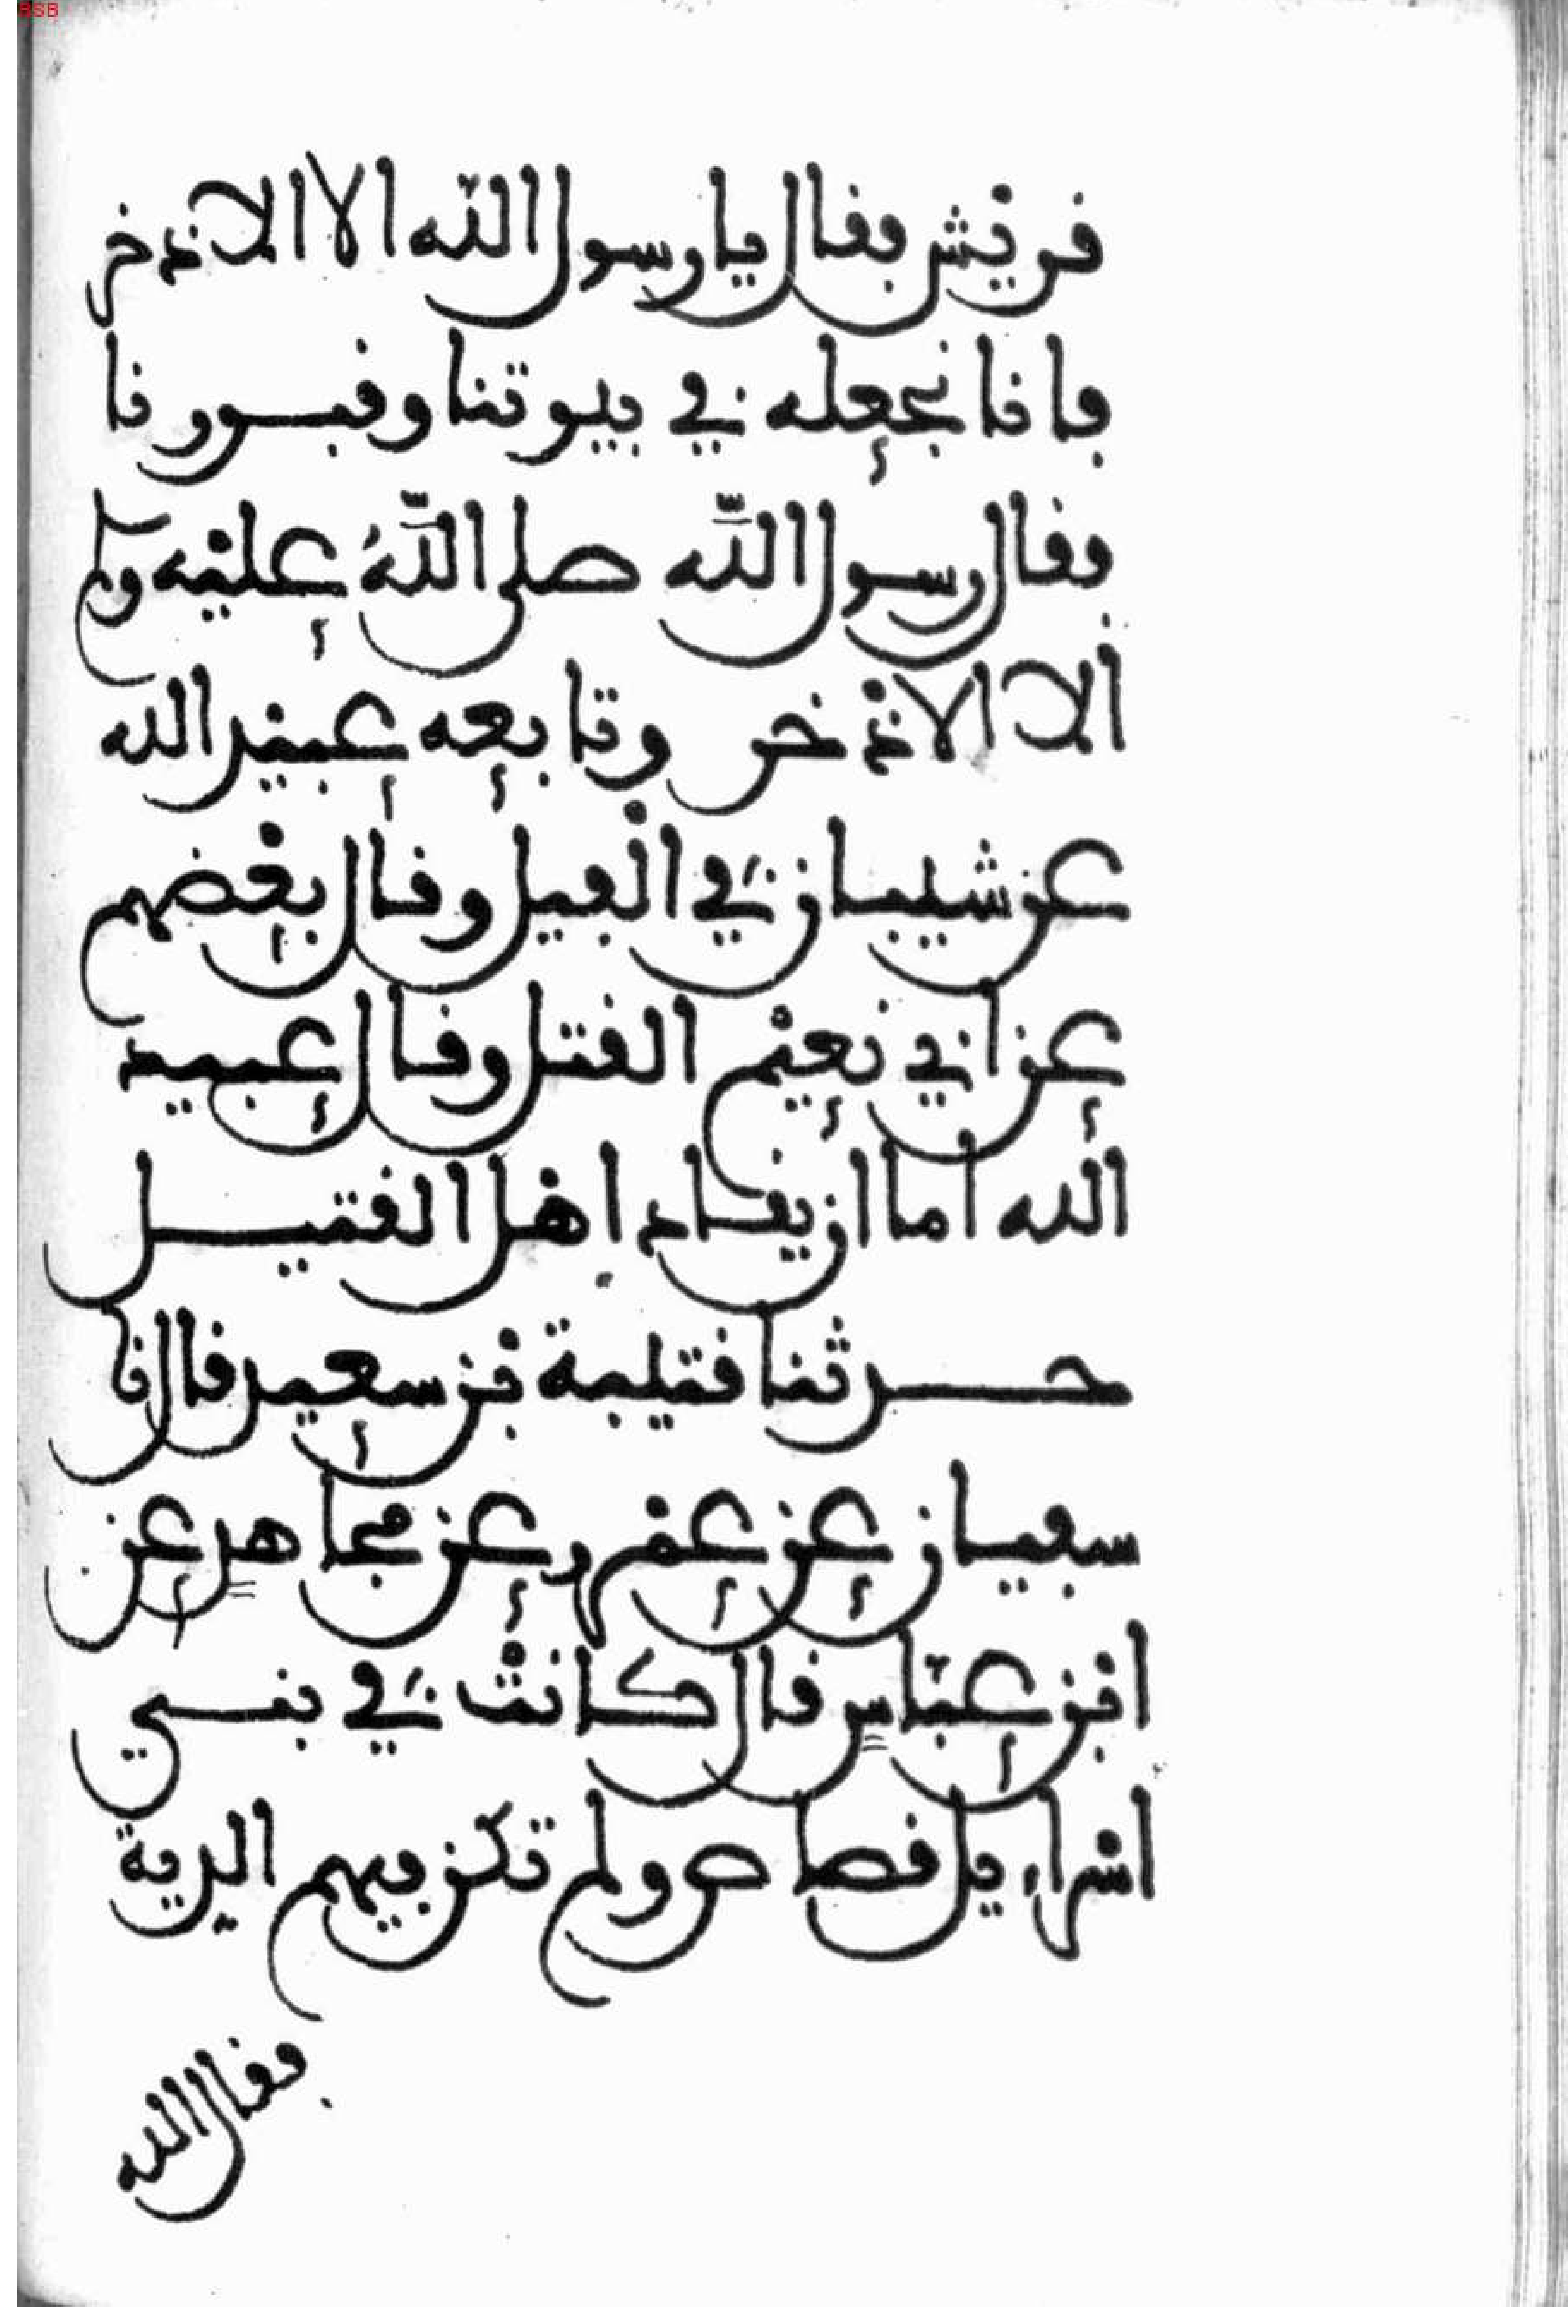 RSB
قريش فقال يا رسول الله الا الاذخر
فانا نجعله في بيوتنا وقبورنا
فقال رسول الله صلى اللهُ عليْه وسلم
الا الاذخر وتابعه عبيد الله
عن شيبان في الْفيل وقال بعْضهم
عن ابي نعيْم القتل وقال عبيد
الله اما ان يقاد اهل القتيل
حدثنا قتيبة بْن سعيد قال نا
سفيان عن عمْرو عن مجاهدٍ عن
ابْن عبّاسٍ قال كانتْ في بني
اسْراءيل قصاص ولم تكن فيهم الدية
فقال الله